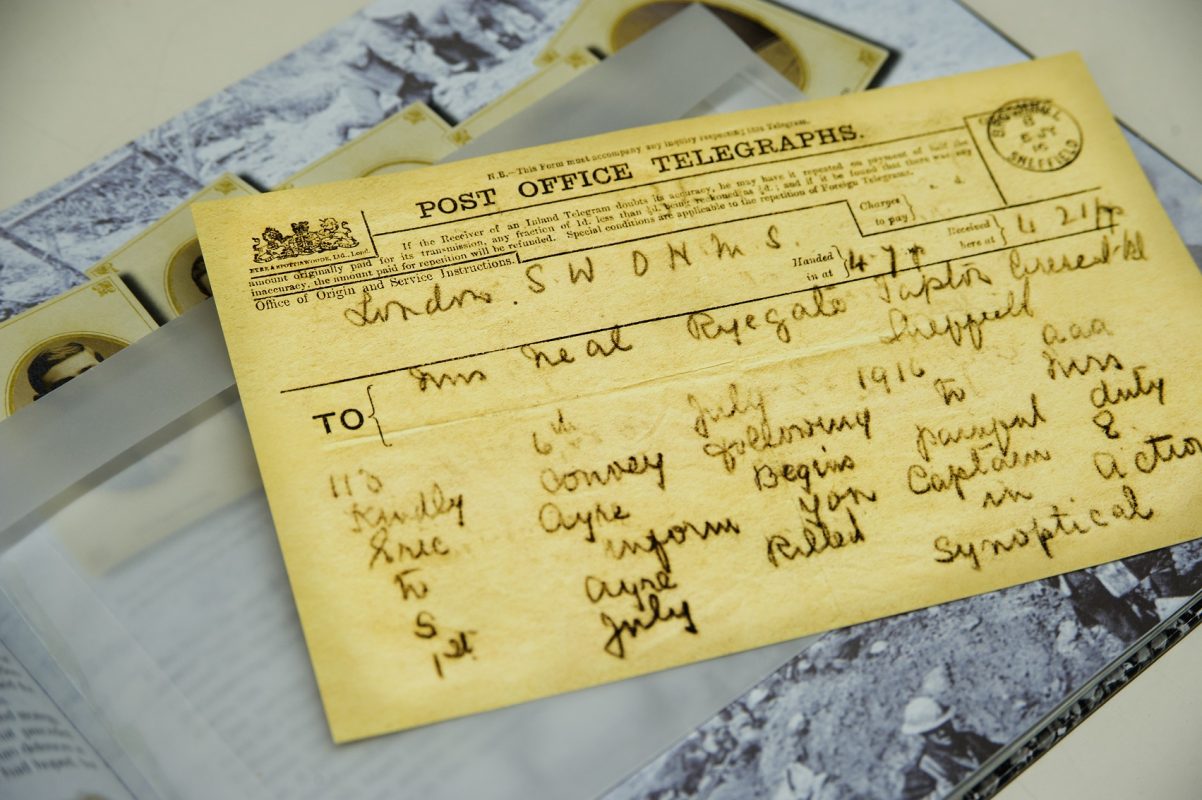 N.B.—This Form must accompany any inquiry respecting this Telegram.
POST OFFICE TELEGRAPHS.
If the Receiver of an Inland Telegram doubts its accuracy, he may have it repeated on payment of half the
amount originally paid for its transmission, any fraction of 1d. less than ½d. being reckoned as ½d.; and if it be found that there was any
inaccuracy, the amount paid for repetition will be refunded. Special conditions are applicable to the repetition of Foreign Telegrams.
EYRE & SPOTTISWOODE, Ltd., Lond.
SHEFFIELD
Office of Origin and Service Instructions.
Charges to pay
s. d.
London. S W O H M S.
Handed in at
4 7
Received here at
4 21
TO
Mrs Neal Ryegate Tapton Crescent Rd
Sheffield
6th July 1916 aaa
Kindly convey following to Miss
Eric Ayre Begins painful duty
to inform you Captain E.
S Ayre Killed in action
1st July Synoptical